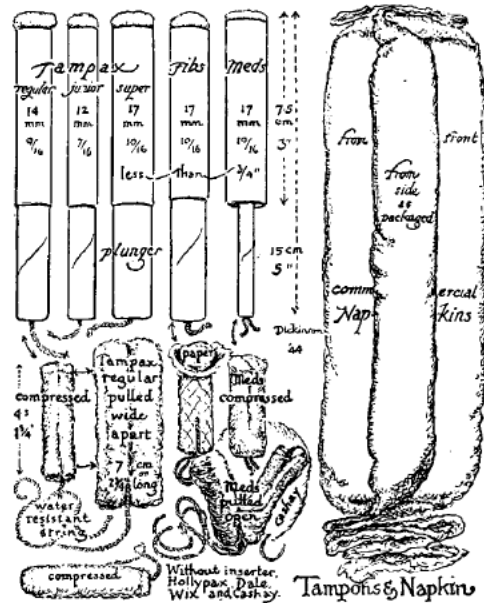 Tampax
Fibs
Meds
regular
junior
super
14
mm
9/16
12
mm
7/16
17
mm
10/16
17
mm
10/16
17
mm
10/16
less than 3/4"
7.5
cm
3"
plunger
15 cm
5"
Dickinson
'44
compressed
Tampax
regular
pulled
wide
apart
7 cm
or
2 3/4 long
water
resistant
string
compressed
paper
Meds
compressed
Meds
pulled
open
Cashay
Without inserter,
Hollypax, Dale,
Wix and Cashay.
from
front
from
side
as
packaged
commercial
Napkins
Tampons & Napkin